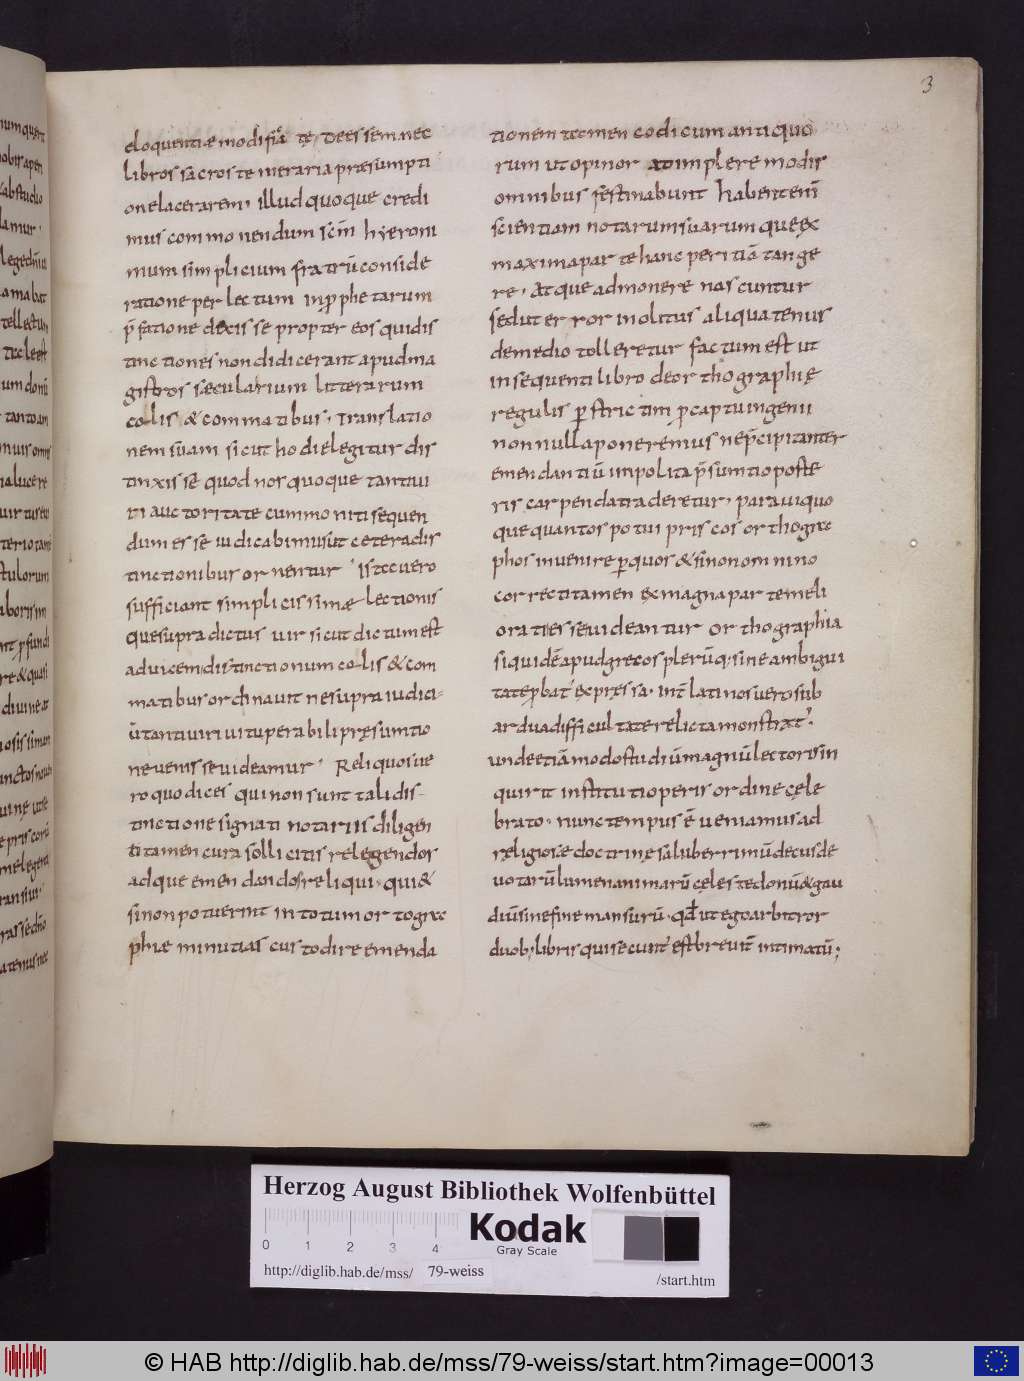 3
eloquentiæ modificata deessem nec
libros sacros temeraria præsumpti
one lacerarem. illud quoque credi
mus commonendum scm hyeroni
mum simplicium fratrū conside
ratione perlectum in prophetarum
p̄fatione dixisse propter eos qui dis
tinctiones non didicerant apud ma
gistros sæcularium litterarum
colis & commatibus. translatio
nem suam sicut hodie legitur dis
tinxisse quod nos quoque tantiui
ri auctoritate cummoniti sequen
dum esse iudicabimus ut cetera dis
tinctionibus ornentur Ista uero
sufficiant simplicissimæ lectionis
que supra dictus uir sicut dictum est
ad uicem distinctionum colis & com
matibus ordinauit ne supra iudici
ū tanti uiri uituperabili presumtio
ne uenisse uideamur. Reliquos ue
ro quo dices qui non sunt tali dis
tinctione signati notariis diligen
ti tamen cura sollicitis relegendos
adque emendandos reliqui. qui &
si non potuerint in totum ortogra
phiæ minutias custodire emenda
tionem tamen codicum antiquo
rum ut opinor adimplere modis
omnibus festinabunt habent enī
scientiam notarum suarum que ex
maxima parte hanc peritiā tange
re. atque admonere nascuntur
sed ut error inolitus aliquatenus
de medio tolleretur factum est ut
in sequenti libro de orthographiæ
regulis perstrictim
non nulla poneremus ne precipitanter
emendantiū impolita p̄sumtio poste
ris carpenda traderetur. paraui quo
que quantos potui priscos orthogra
phos inuenire per quos & si non omnino
correcti tamen ex magna parte meli
orati esse uideantur orthographia
siquidē apud grecos plerūq; sine ambigui
tate probatur expressa. inter latinos uero sub
ardua difficultate relicta monstratur.
unde etiā modo studiū magnū lectoris in
quirit instituti operis ordine cele
brato. nunc tempus ē ueniamus ad
religiosæ doctrine saluberrimū decus de
uotarū lumen animarū celeste donū & gau
diū sine fine mansurū. qd ut ego arbitror
duob; libris qui secunt est breuit intimatū;
Herzog August Bibliothek Wolfenbüttel
0 1 2 3 4
Kodak
Gray Scale
http://diglib.hab.de/mss/ 79-weiss /start.htm
© HAB http://diglib.hab.de/mss/79-weiss/start.htm?image=00013